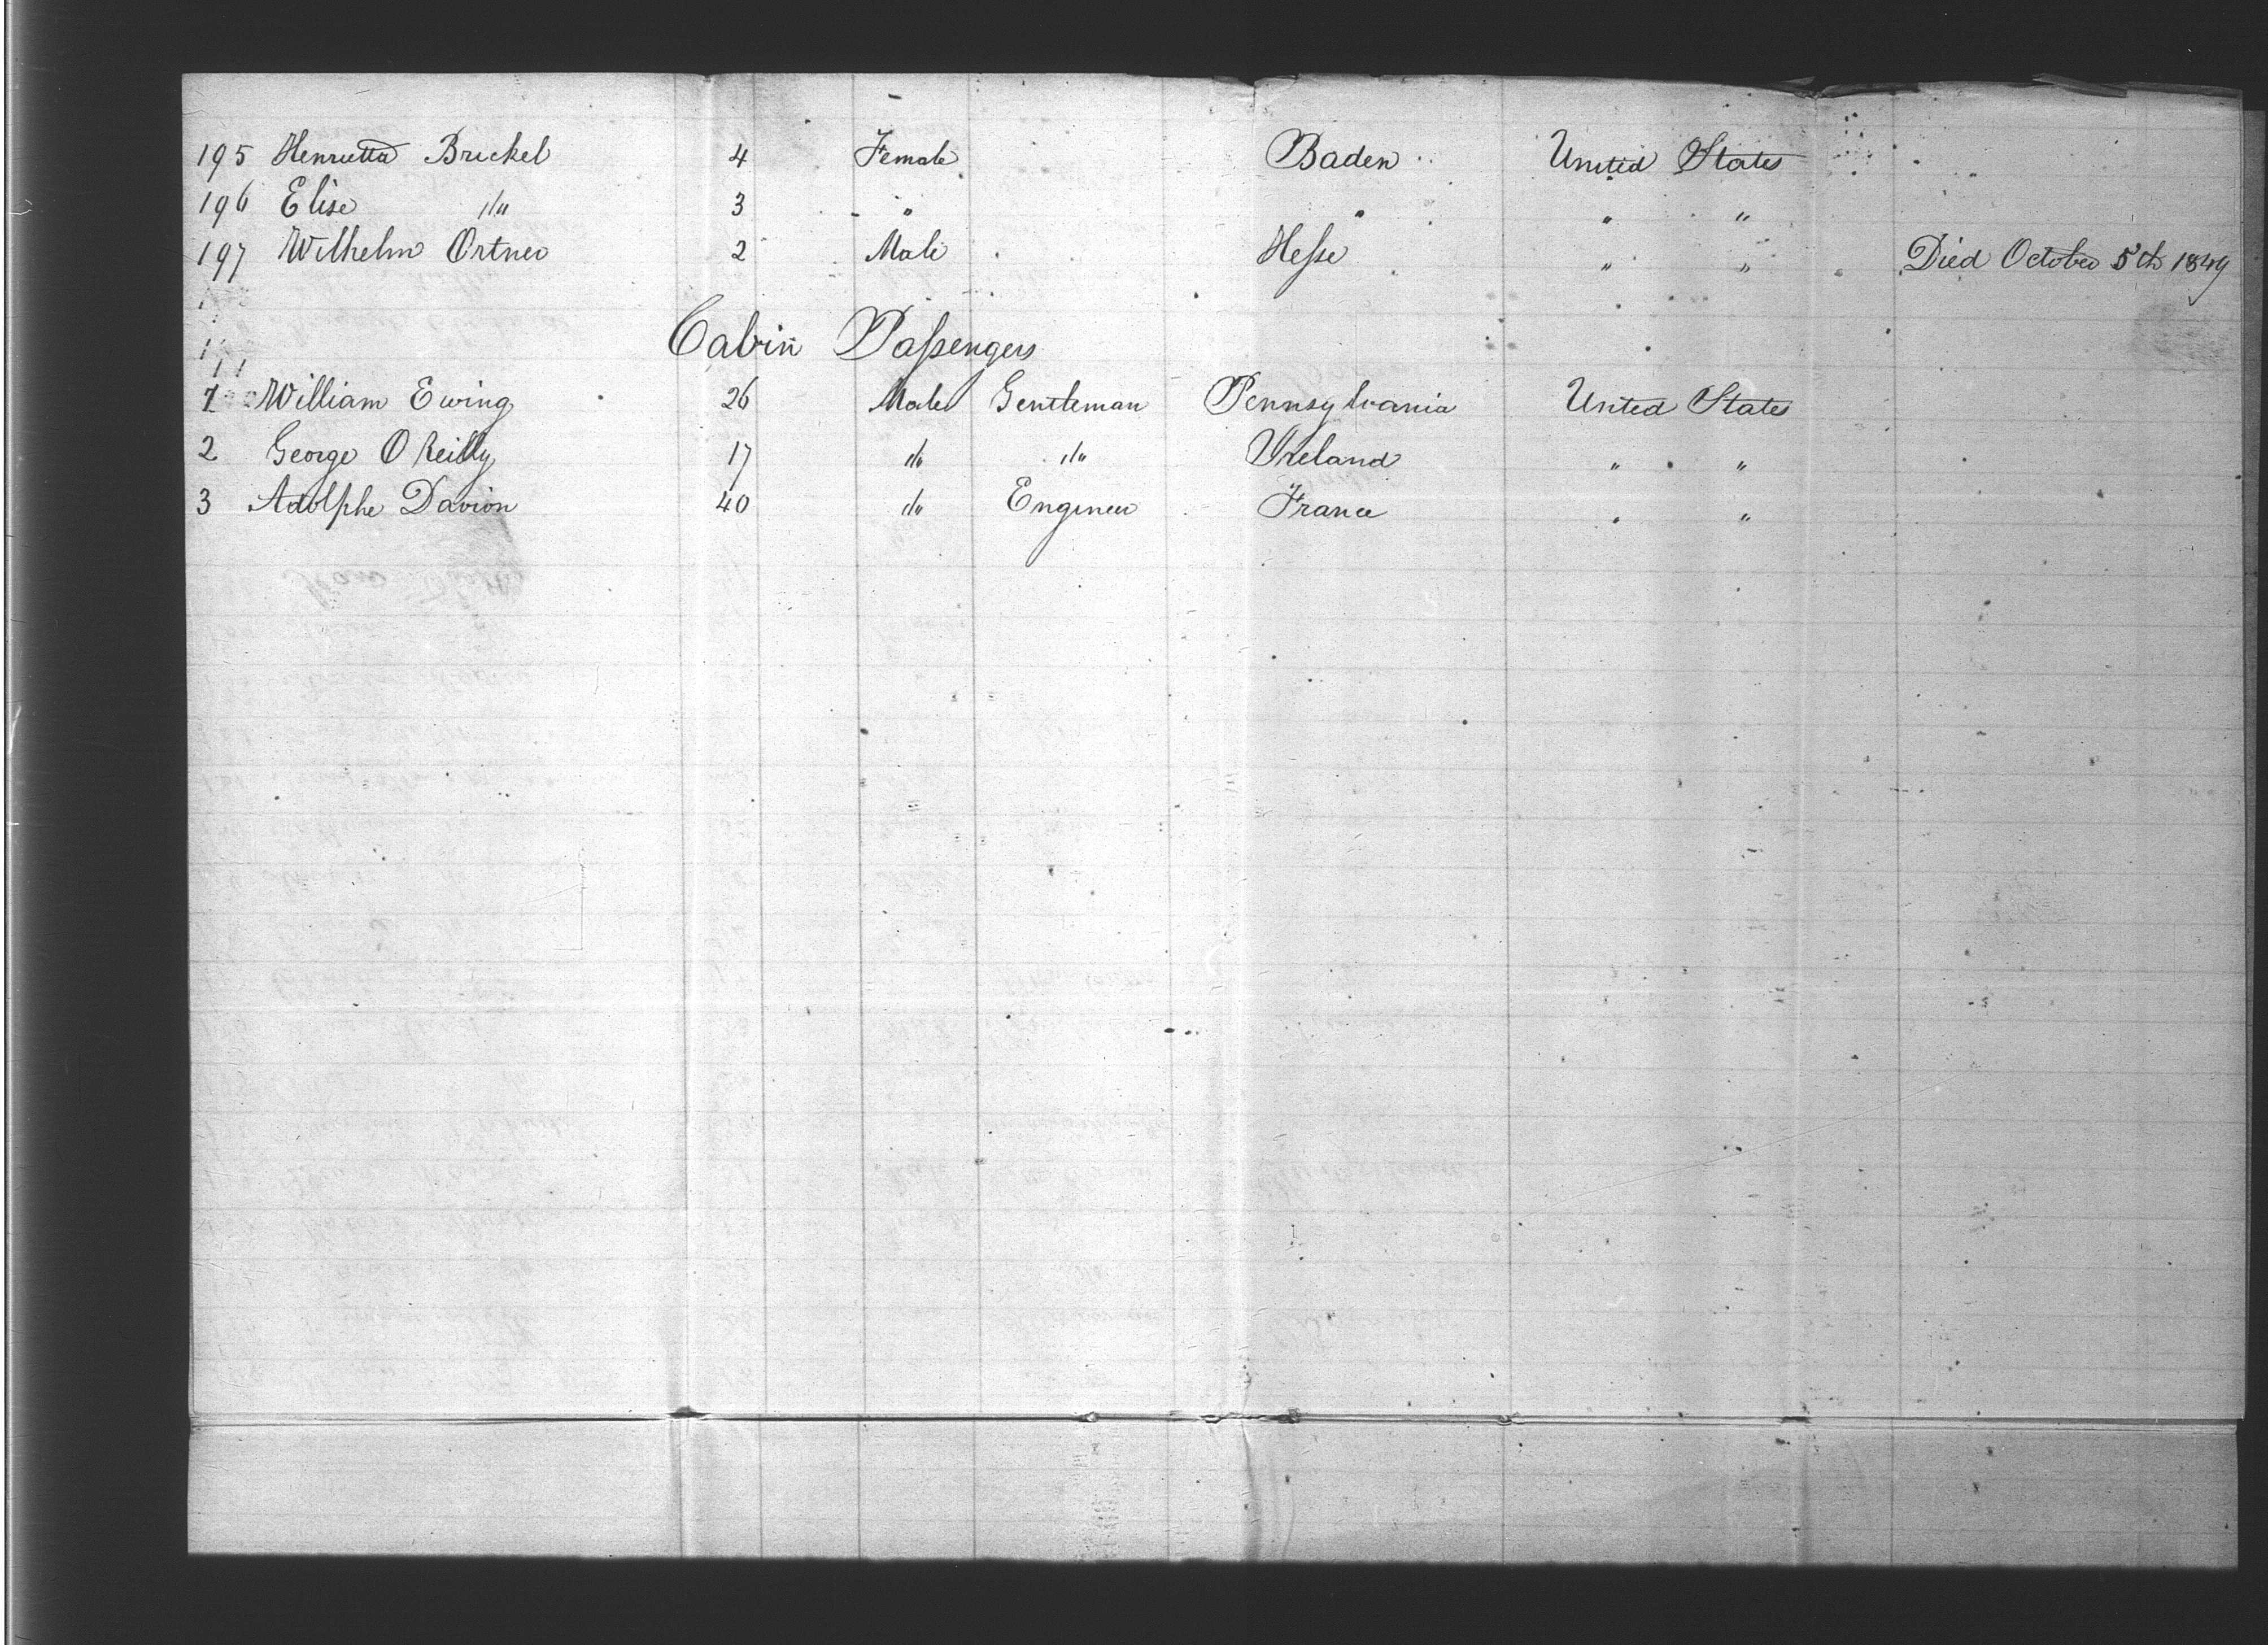 195 Henrietta Brickel 4 Female Baden United States
196 Elise " 3 " " " "
197 Wilhelm Ortner 2 Male Hesse " " Died October 5th 1849
Cabin Passengers
1 William Ewing 26 Male Gentleman Pennsylvania United States
2 George O Reilly 17 " " Ireland " "
3 Adolphe Davion 40 " Engineer France " "